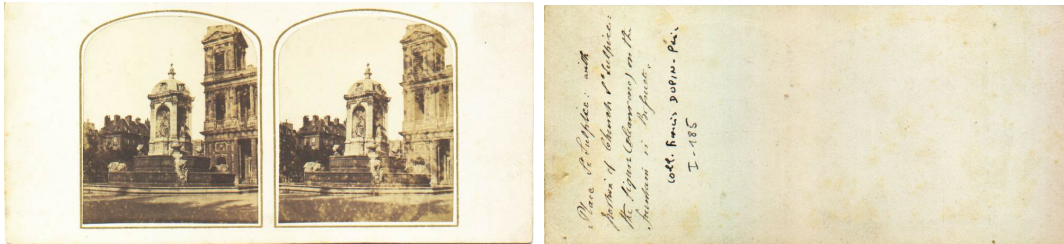 Place St Sulpice: with
portion of Church St Sulpice:
the figure
fountain is Bossuet.
Coll. Francis DUPIN - Paris
I-185